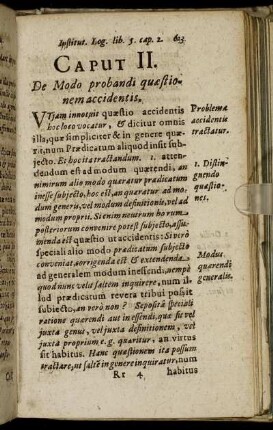 Institut. Log. lib. 3. cap. 2. 603
CAPUT II.
De Modo probandi quæstio-
nem accidentis.
VTjam innotuit quæstio accidentis
hoc loco vocatur, & dicitur omnis
illa, quæ simpliciter & in genere quæ-
rit, num Prædicatum aliquod insit sub-
jecto. Et hoc ita tractandum. 1. atten-
dendum est ad modum quærendi, an
nimirum alio modo quæratur prædicatũ
inesse subjecto, hoc est, an quæratur ad mo-
dum generis, vel modum definitionis, vel ad
modum proprii. Si enim neutrum horum
posteriorum convenire potest subjecto, assu-
menda est quæstio ut accidentis: Si verò
speciali alio modo prædicatum subjecto
conveniat corrigenda est & extendenda
ad generalem modum inessendi, nempè
quod nunc velis saltem inquirere, num il-
lud prædicatum revera tribui possit
subjecto, an verò non? Sepositâ speciali
ratione quærendi aut inessendi, quæ sit vel
juxta genus, vel juxta definitionem, vel
juxta proprium e.g. quæritur, an virtus
sit habitus. Hanc quæstionem ita possum
tractare, ut saltẽ in genere inquiratur, num
Rr 4 habitus
Problema
accidentis
tractatur.
1. Distin-
guendo
quæstio-
nes.
Modus
quærendi
generalis.